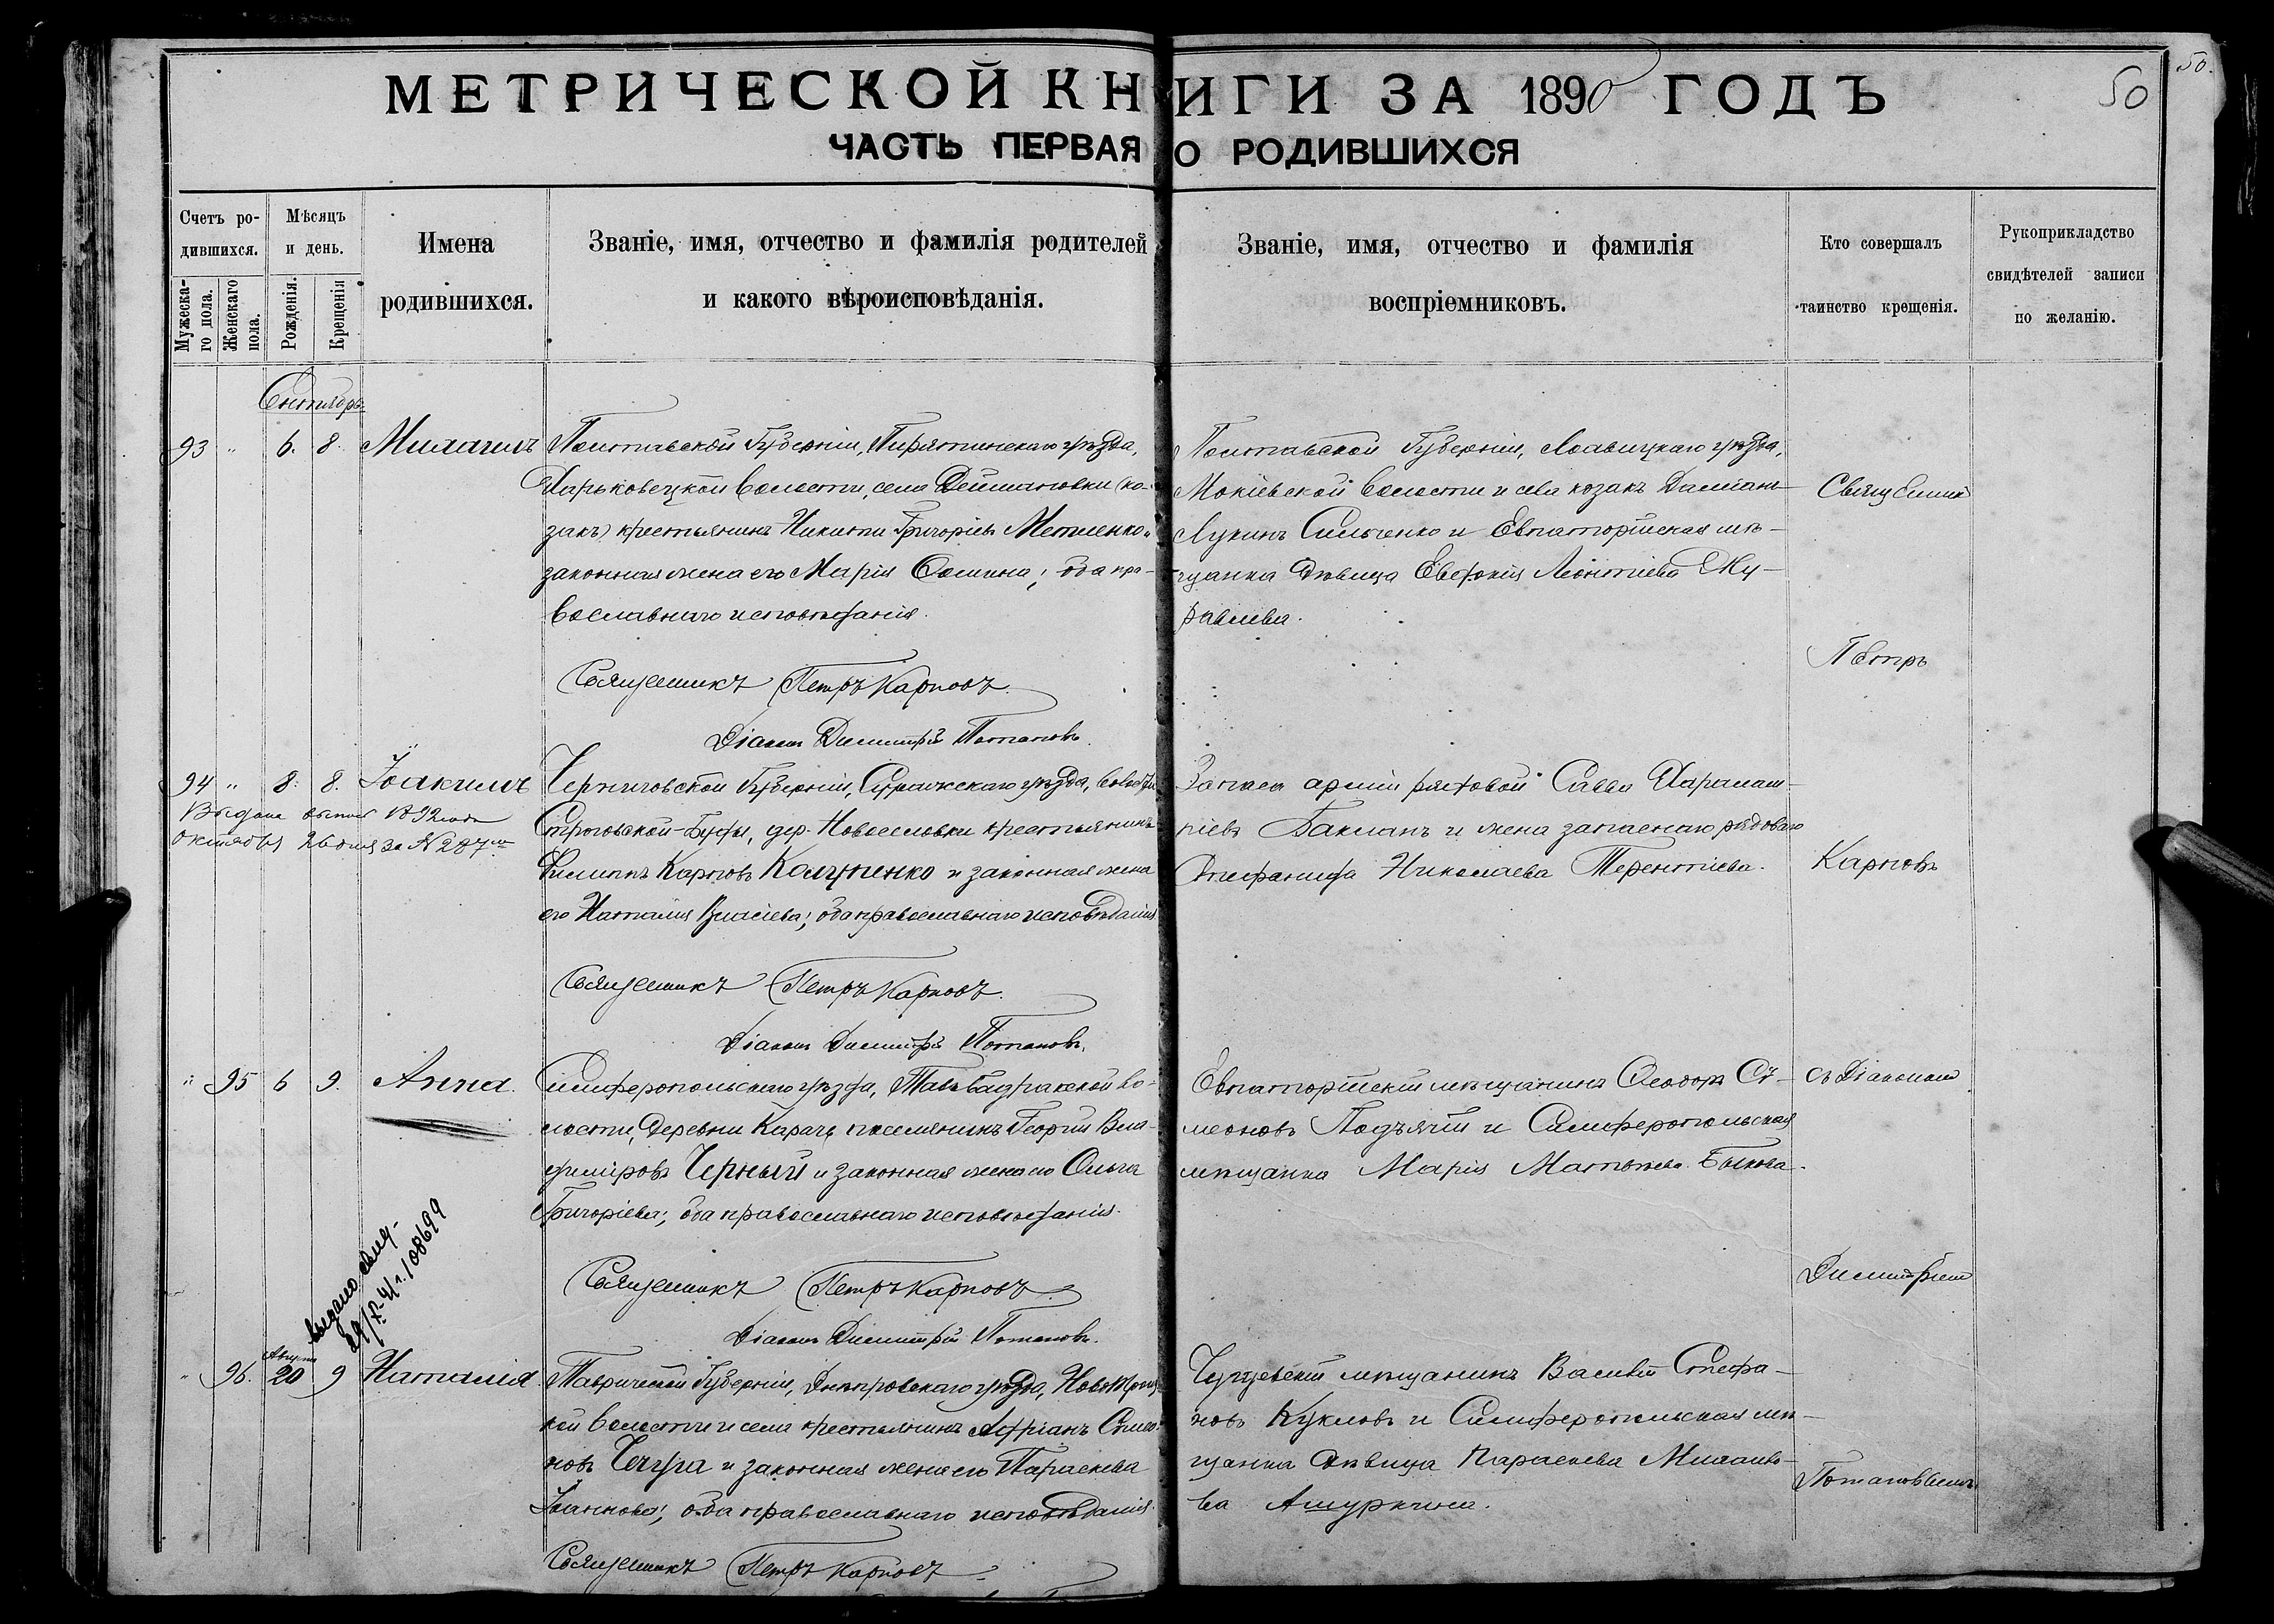 50.
50
МЕТРИЧЕСКОЙ КНИГИ ЗА 1890 ГОДЪ
ЧАСТЬ ПЕРВАЯ О РОДИВШИХСЯ
Счетъ ро-
дившихся.
Мужеска-
го пола.
Женскаго
пола.
Мѣсяцъ
и день.
Рожденія.
Крещенія
Имена
родившихся.
Званіе, имя, отчество и фамилія родителей
и какого вѣроисповѣданія.
Званіе, имя, отчество и фамилія
воспріемниковъ.
Кто совершалъ
таинство крещенія.
Рукоприкладство
свидѣтелей записи
по желанію.
Сентябрь
93 " 6. 8. Михаилъ
Полтавской Губерніи, Пирятинскаго уѣзда,
Харьковецкой волости, села Дейманов­ки (ко-
закъ) крестьянинъ Никита Григорьевъ Метленко и
законная жена его Марія Фомина; оба пра-
вославнаго исповѣданія.
Священникъ Петръ Карповъ.
Діаконъ Димитрій Потаповъ.
Полтавской Губерніи, Лохвицкаго уѣзда,
Мокіевской волости и села козакъ Даміанъ
Лукинъ Сильченко и Евпаторійская мѣ-
щанка дѣвица Евдокія Леонтіева Жу-
равлева.
Священникъ
Петръ
Карповъ
съ Діакономъ
Димитріемъ
Потаповымъ
94 " 8. 8. Іоакимъ
Выдана выпись 1892 года
октября 26 дня за № 287
Черниговской Губерніи, Суражскаго уѣзда, волости
Строговской-Буды, дер. Новоселовки крестьянинъ
Филиппъ Карповъ Колупенко и законная жена
его Наталія Власіева; оба православнаго исповѣданія
Священникъ Петръ Карповъ.
Діаконъ Димитрій Потаповъ.
Запаса арміи рядовой Савва Харалам-
піевъ Бакланъ и жена запаснаго рядоваго
Епифанида Николаева Терентіева.
" 95 6 9. Анна.
Симферопольскаго уѣзда, Тавъ-Бадракской во-
лости, деревни Карачъ поселянинъ Георгій Вла-
диміровъ Черный и законная жена его Ольга
Григоріева; оба православнаго исповѣданія.
Священникъ Петръ Карповъ
Діаконъ Димитрій Потаповъ.
Евпаторійскій мѣщанинъ Ѳеодоръ Сѵ-
меоновъ Подъячій и Симферопольская
мѣщанка Марія Матѳѣева Быкова.
выдано свид-
108699
" 96. Августа 20 9 Наталія
Таврической Губерніи, Днѣпровскаго уѣзда, Новотроиц-
кой волости и села крестьянинъ Адріанъ Сѵмео-
новъ Чечуга и законная жена его Параскева
Іоаннова; оба православнаго исповѣданія.
Священникъ Петръ Карповъ
Чугуевскій мѣщанинъ Василій Стефа-
новъ Кукловъ и Симферопольская мѣ-
щанка дѣвица Параскева Михаило-
ва